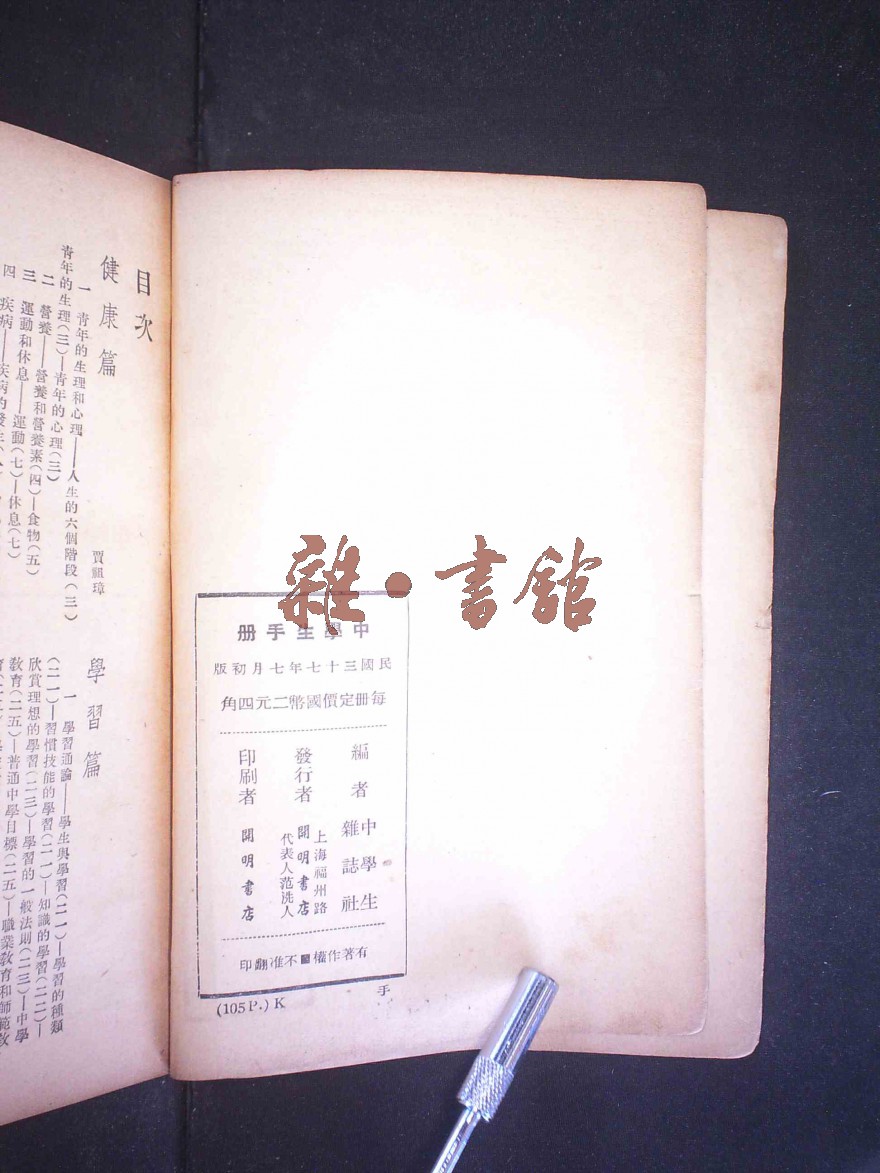 目次
健康篇
賈祖璋
一 青年的生理和心理——人生的六個階段(三)
青年的生理(三)—青年的心理(三)
二 營養——營養和營養素(四)—食物(五)
三 運動和休息——運動(七)—休息(七)
四 疾病——疾病的發生
學習篇
一 學習通論——學生與學習(二一)—學習的種類
(二一)—習慣技能的學習(二一)—知識的學習(二二)—
欣賞理想的學習(二三)—學習的一般法則(二三)—中學
教育(二五)—普通中學目標(二五)—職業教育和師範教
雜·書館
中學生手册
民國三十七年七月初版
每册定價國幣二元四角
編者 中學生雜誌社
發行者 上海福州路 開明書店 代表人范洗人
印刷者 開明書店
有著作權不准翻印
(105P.) K
手